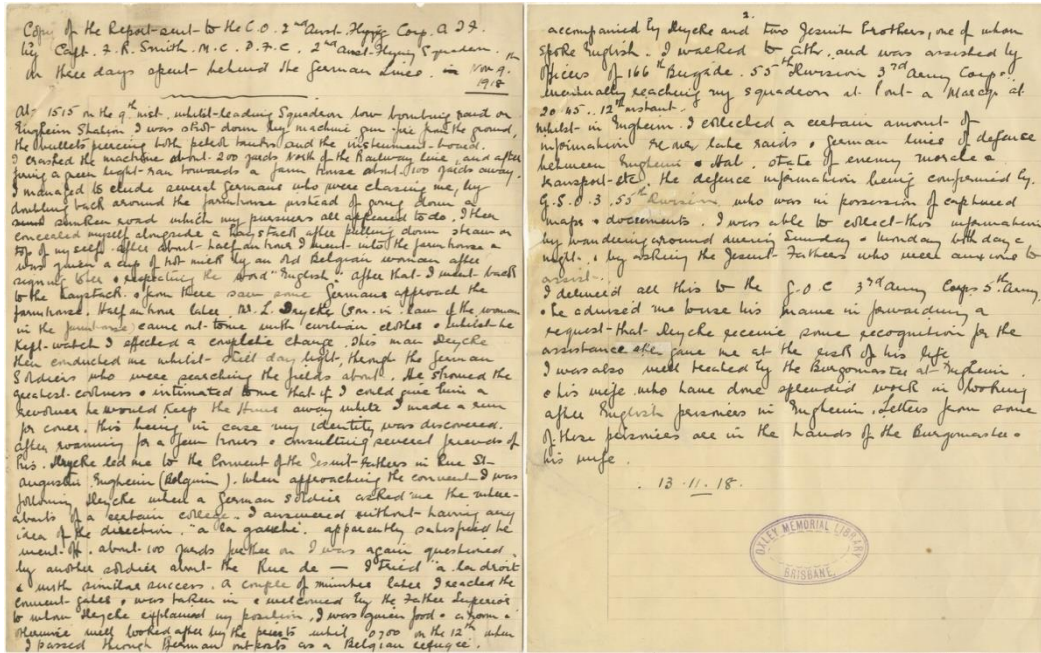 Copy of the Report sent to the C.O. 2nd Aust. Flying Corp. A I F.
by Capt. F. R. Smith. M.C. D.F.C. 2nd Aust. Flying Squadron.
on three days spent behind the German Lines. in Nov 9th
1918
At 1515 on the 9th inst. whilst leading Squadron low bombing raid on
Enghein Station I was shot down by machine gun fire from the ground,
the bullets piercing both petrol tanks and the instrument board.
I crashed the machine about 200 yards North of the Railway line, and after
firing a green light ran towards a farm House about 100 yards away.
I managed to elude several Germans who were chasing me, by
doubling back around the farmhouse instead of going down a
sunken road which my pursuers all appeared to do. I then
concealed myself alongside a haystack after pulling down straw on
top of myself. After about half an hour I went into the farmhouse &
was given a cup of hot milk by an old Belgian woman after
signing to her & repeating the word "English". After that I went back
to the haystack & from there saw some Germans approach the
farmhouse. Half an hour later Mr. L. Deycke (Son. in. law of the woman
in the farmhouse) came out to me with civilian clothes & whilst he
kept watch I effected a complete change. This man Deycke
then conducted me whilst still day light through the German
Soldiers who were searching the fields about. He showed the
greatest coolness & intimated to me that if I could give him a
revolver he would keep the Huns away while I made a run
for cover. This being in case my identity was discovered.
After roaming for a few hours & consulting several friends of
his. Deycke led me to the Convent of the Jesuit Fathers in Rue St
Augustin Enghein (Belguim). When approaching the convent I was
following Deycke when a German soldier asked me the where-
abouts of a certain college. I answered without having any
idea of the direction "a la gauche". apparently satisfied he
went off. about 100 yards further on I was again questioned
by another soldier about the Rue de — I tried "a la droit
& with similar success. A couple of minutes later I reached the
convent gates & was taken in & welcomed by the Father Superior
to whom Deycke explained my position. I was given food & a room &
otherwise well looked after by the priests until 0700 on the 12th when
I passed through German outposts as a Belgian refugee.
2.
accompanied by Deycke and two Jesuit brothers, one of whom
spoke English. I walked to Ath. and was assisted by
Officers of 166th Brigade. 55th Division 3rd Army Corps.
eventually reaching my squadron at Pont a Marcq at
20.45. 12th instant.
Whilst in Enghein I collected a certain amount of
information re our late raids & German lines of defence
between Enghein & Hal. state of enemy morale &
transport etc. the defence information being confirmed by
G.S.O.3. 55th Division who was in possession of captured
maps & documents. I was able to collect this information
by wandering around during Sunday & Monday both day &
night. & by asking the Jesuit Fathers who were anxious to
assist.
I delivered all this to the G.O.C 3rd Army Corps 5th Army
& he advised me to use his name in forwarding a
request that Deycke receive some recognition for the
assistance he gave me at the risk of his life
I was also well treated by the Burgomaster at Enghein
& his wife who have done splendid work in looking
after English prisoners in Enghein. Letters from some
of these prisoners are in the hands of the Burgomaster &
his wife.
13.11.18.
OXLEY MEMORIAL LIBRARY
BRISBANE